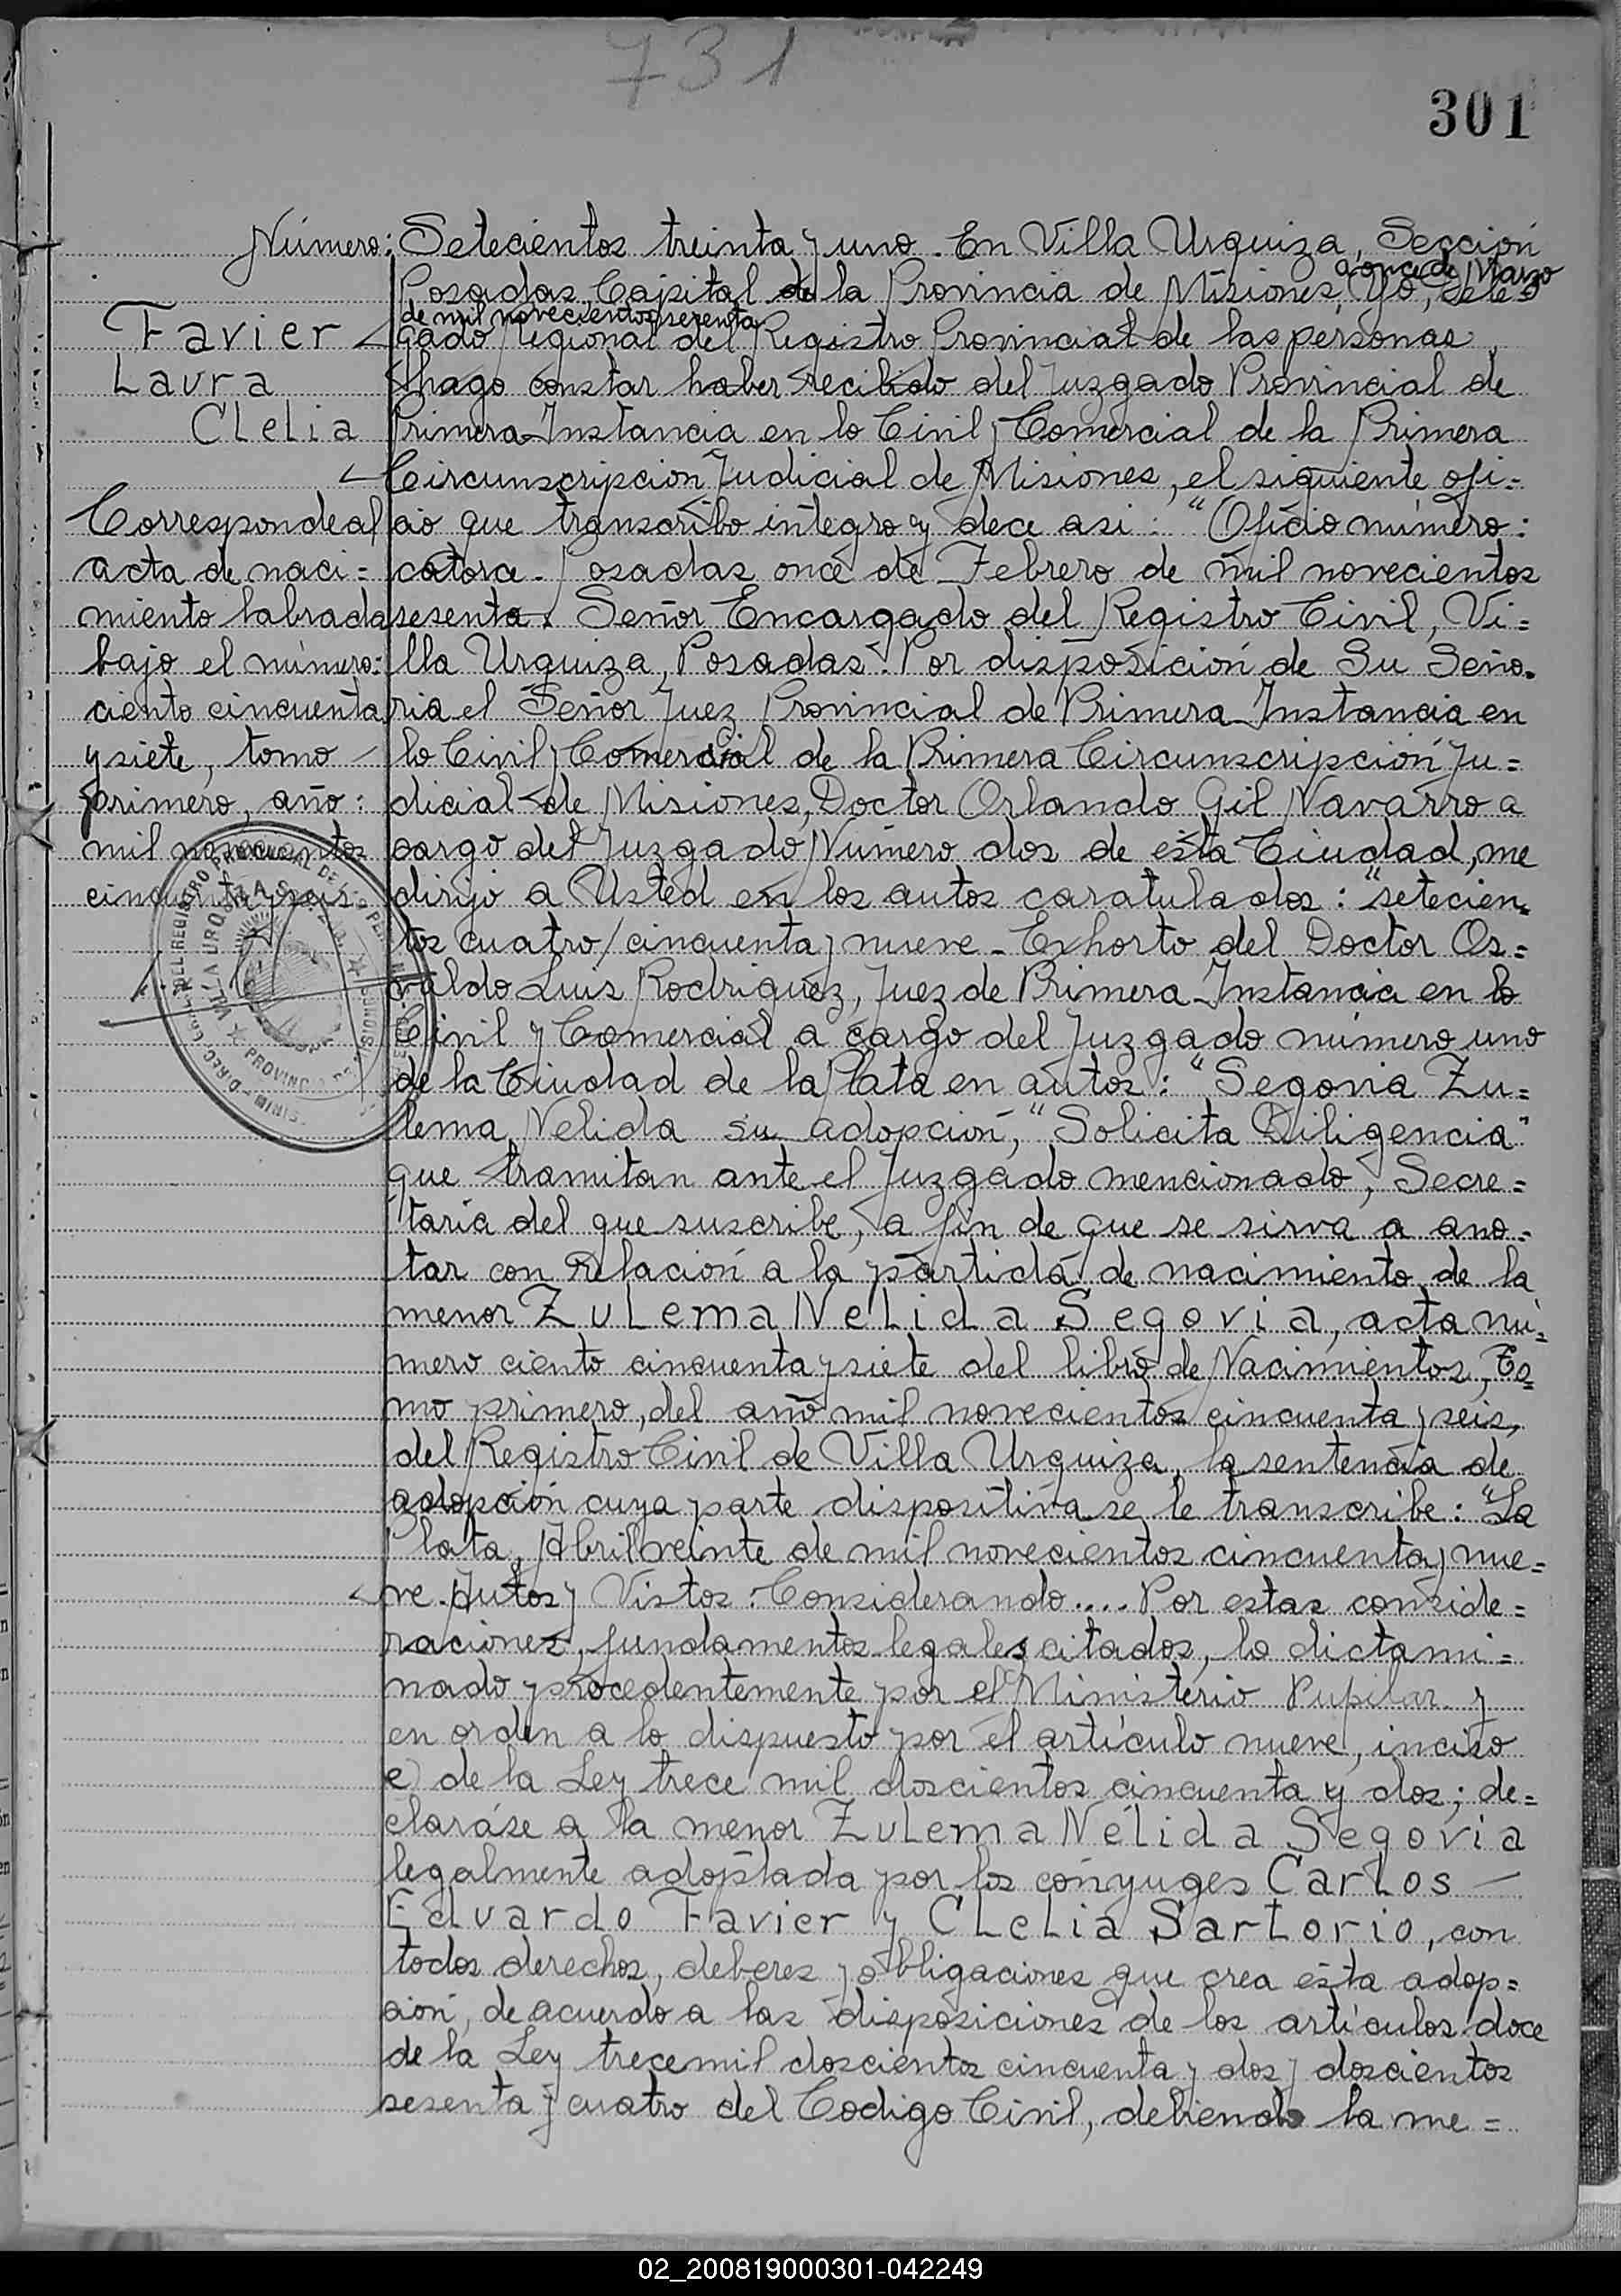 731
301
Número: Setecientos treinta y uno. En Villa Urquiza, Sección
Posadas, Capital de la Provincia de Misiones, a once de Marzo
de mil novecientos sesenta Yo, Dele=
Favier gado Regional del Registro Provincial de las personas,
Laura hago constar haber recibido del Juzgado Provincial de
Clelia Primera Instancia en lo Civil y Comercial de la Primera
Circunscripción Judicial de Misiones, el siguiente ofi=
Corresponde al cio que transcribo integro y dece asi: "Oficio número:
acta de naci= catorce. Posadas once de Febrero de mil novecientos
miento labrada sesenta. Señor Encargado del Registro Civil, Vi=
bajo el número: lla Urquiza, Posadas. Por disposición de Su Seño.
ciento cincuenta ria el Señor Juez Provincial de Primera Instancia en
y siete, tomo lo Civil y Comercial de la Primera Circunscripción Ju=
primero, año: dicial de Misiones, Doctor Orlando Gil Navarro a
mil novecientos cargo del Juzgado Número dos de esta Ciudad, me
cincuenta y seis. dirijo a Usted en los autos caratulados: "setecien=
tos cuatro/cincuenta y nueve - Exhorto del Doctor Os=
valdo Luis Rodriguez, Juez de Primera Instancia en lo
Civil y Comercial a cargo del Juzgado número uno
de la Ciudad de la Plata en autos: "Segovia Zu=
lema Nelida su adopción," "Solicita Diligencia"
que tramitan ante el Juzgado mencionado, Secre=
taria del que suscribe, a fin de que se sirva a ano=
tar con relación a la partida de nacimiento de la
menor Zulema Nelida Segovia, acta nú=
mero ciento cincuenta y siete del libro de Nacimientos, To=
mo primero, del año mil novecientos cincuenta y seis,
del Registro Civil de Villa Urquiza, la sentencia de
adopción cuya parte dispositiva se le transcribe: "La
Plata, Abril veinte de mil novecientos cincuenta y nue=
ve. Autos y Vistos: Considerando.... Por estas conside=
raciones, fundamentos legales citados, lo dictami=
nado procedentemente por el Ministerio Pupilar y
en orden a lo dispuesto por el artículo nueve, inciso
e) de la Ley trece mil doscientos cincuenta y dos; de=
claráse a la menor Zulema Nélida Segovia
legalmente adoptada por los cónyuges Carlos
Eduardo Favier y Clelia Sartorio, con
todos derechos, deberes y obligaciones que crea esta adop=
ción, de acuerdo a las disposiciones de los artículos doce
de la Ley trece mil doscientos cincuenta y dos y doscientos
sesenta y cuatro del Codigo Civil, debiendo la me=
02_200819000301-042249